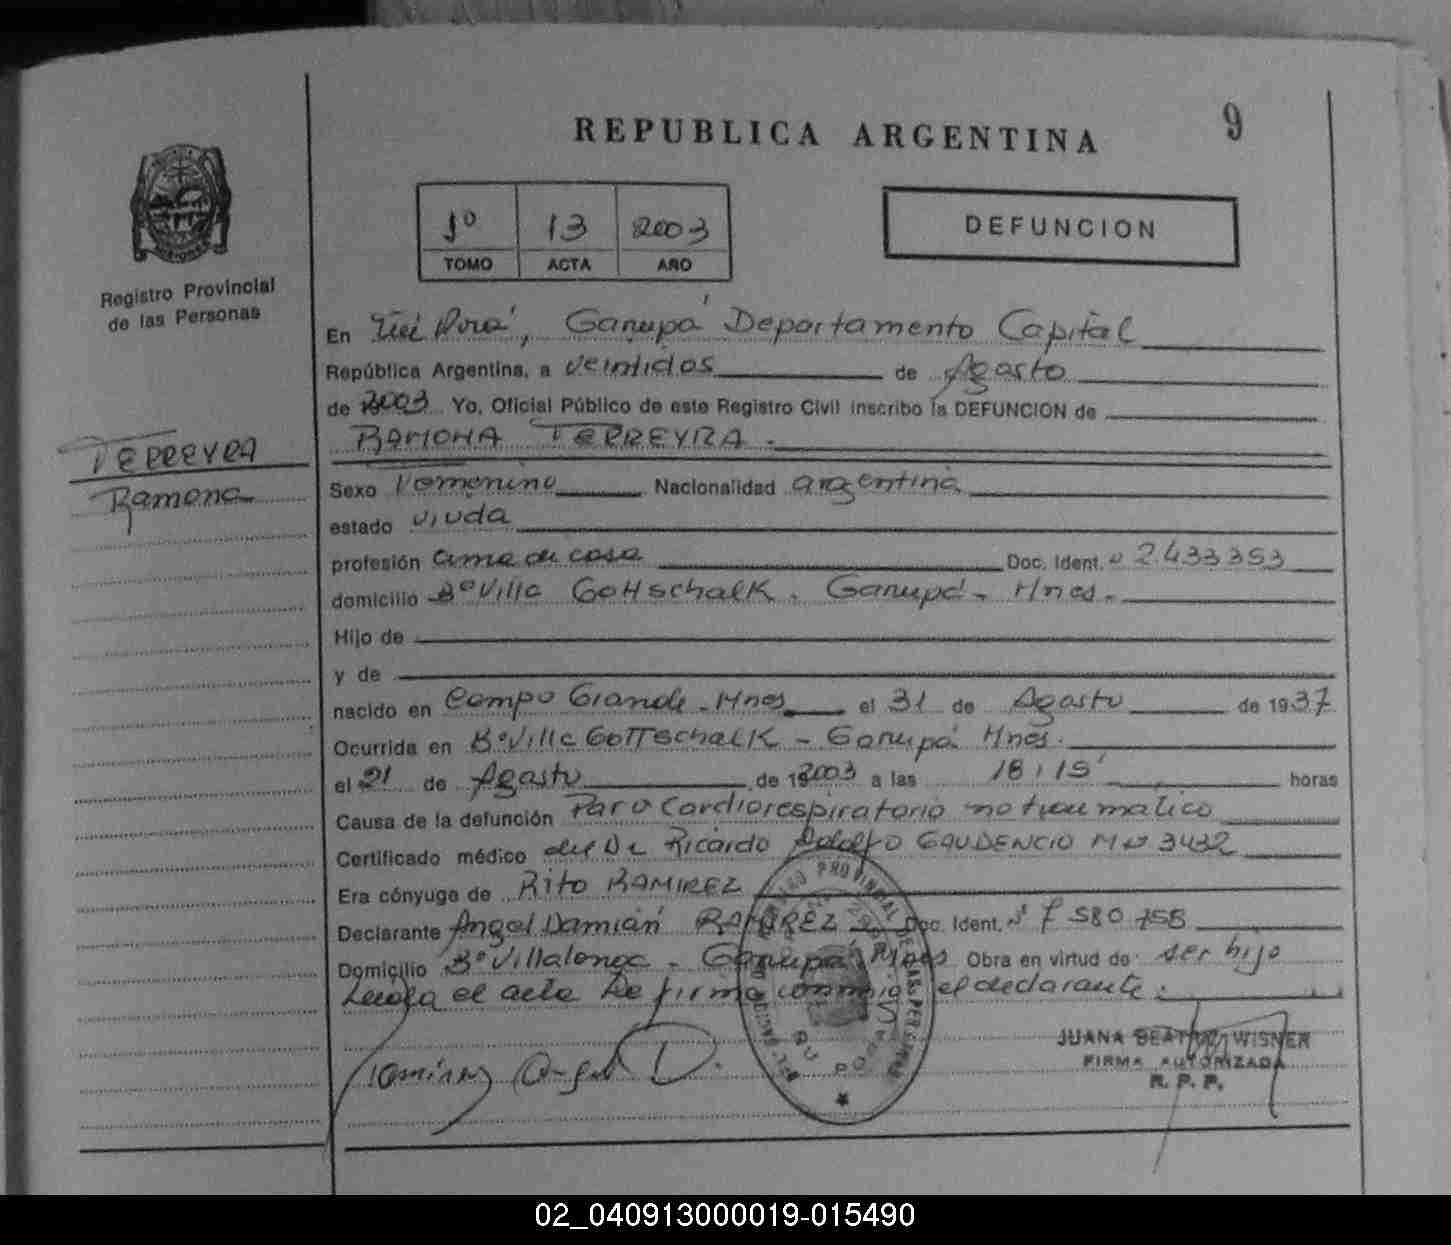 9
REPUBLICA ARGENTINA
1º 13 2003
TOMO ACTA AÑO
DEFUNCION
Registro Provincial
de las Personas
En Garupá Departamento Capital
República Argentina, a veintidos de Agosto
de 2003 Yo, Oficial Público de este Registro Civil inscribo la DEFUNCION de
RAMONA FERREYRA.
FERREYRA
Ramona
Sexo Femenino Nacionalidad argentina
estado viuda
profesión ama de casa Doc. Ident. 2.433353
domicilio Bº Villa Gottschalk. Garupá - Mnes.
Hijo de
y de
nacido en Campo Grande - Mnes el 31 de Agosto de 1937
Ocurrida en Bº Villa Gottschalk - Garupá Mnes.
el 21 de Agosto de 2003 a las 18:15 horas
Causa de la defunción Paro Cardiorespiratorio no traumatico
Certificado médico del Dr Ricardo Adolfo GAUDENCIO Mº 3432
Era cónyuge de Rito RAMIREZ
Declarante Angel Damián RAMIREZ Doc. Ident. 580.758
Domicilio Bº Villalonga - Garupá Mnes Obra en virtud de ser hijo
Leida el acta la firma conmigo el declarante.
Ramirez Angel D.
JUANA BEATRIZ WISNER
FIRMA AUTORIZADA
R. P. P.
02_040913000019-015490